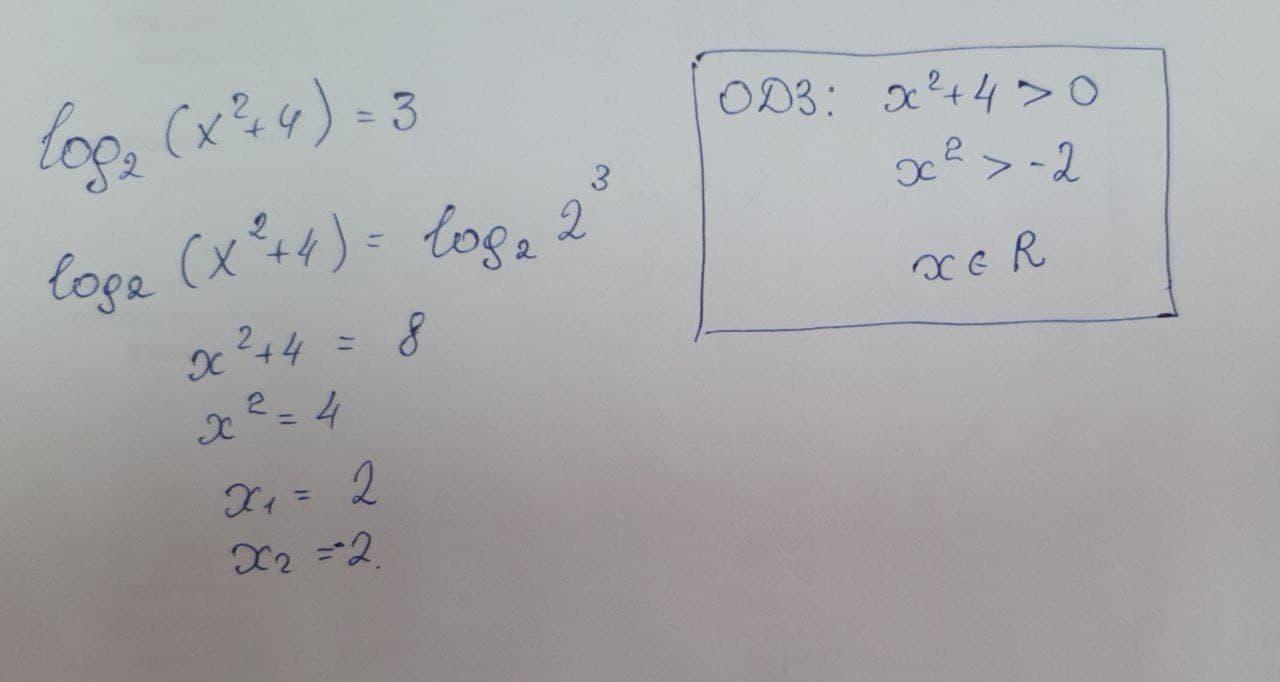 log₂ (x²+4) = 3
log₂ (x²+4) = log₂ 2³
x²+4 = 8
x² = 4
x₁ = 2
x₂ = -2.
ОДЗ: x²+4 > 0
x² > -2
x ∈ R